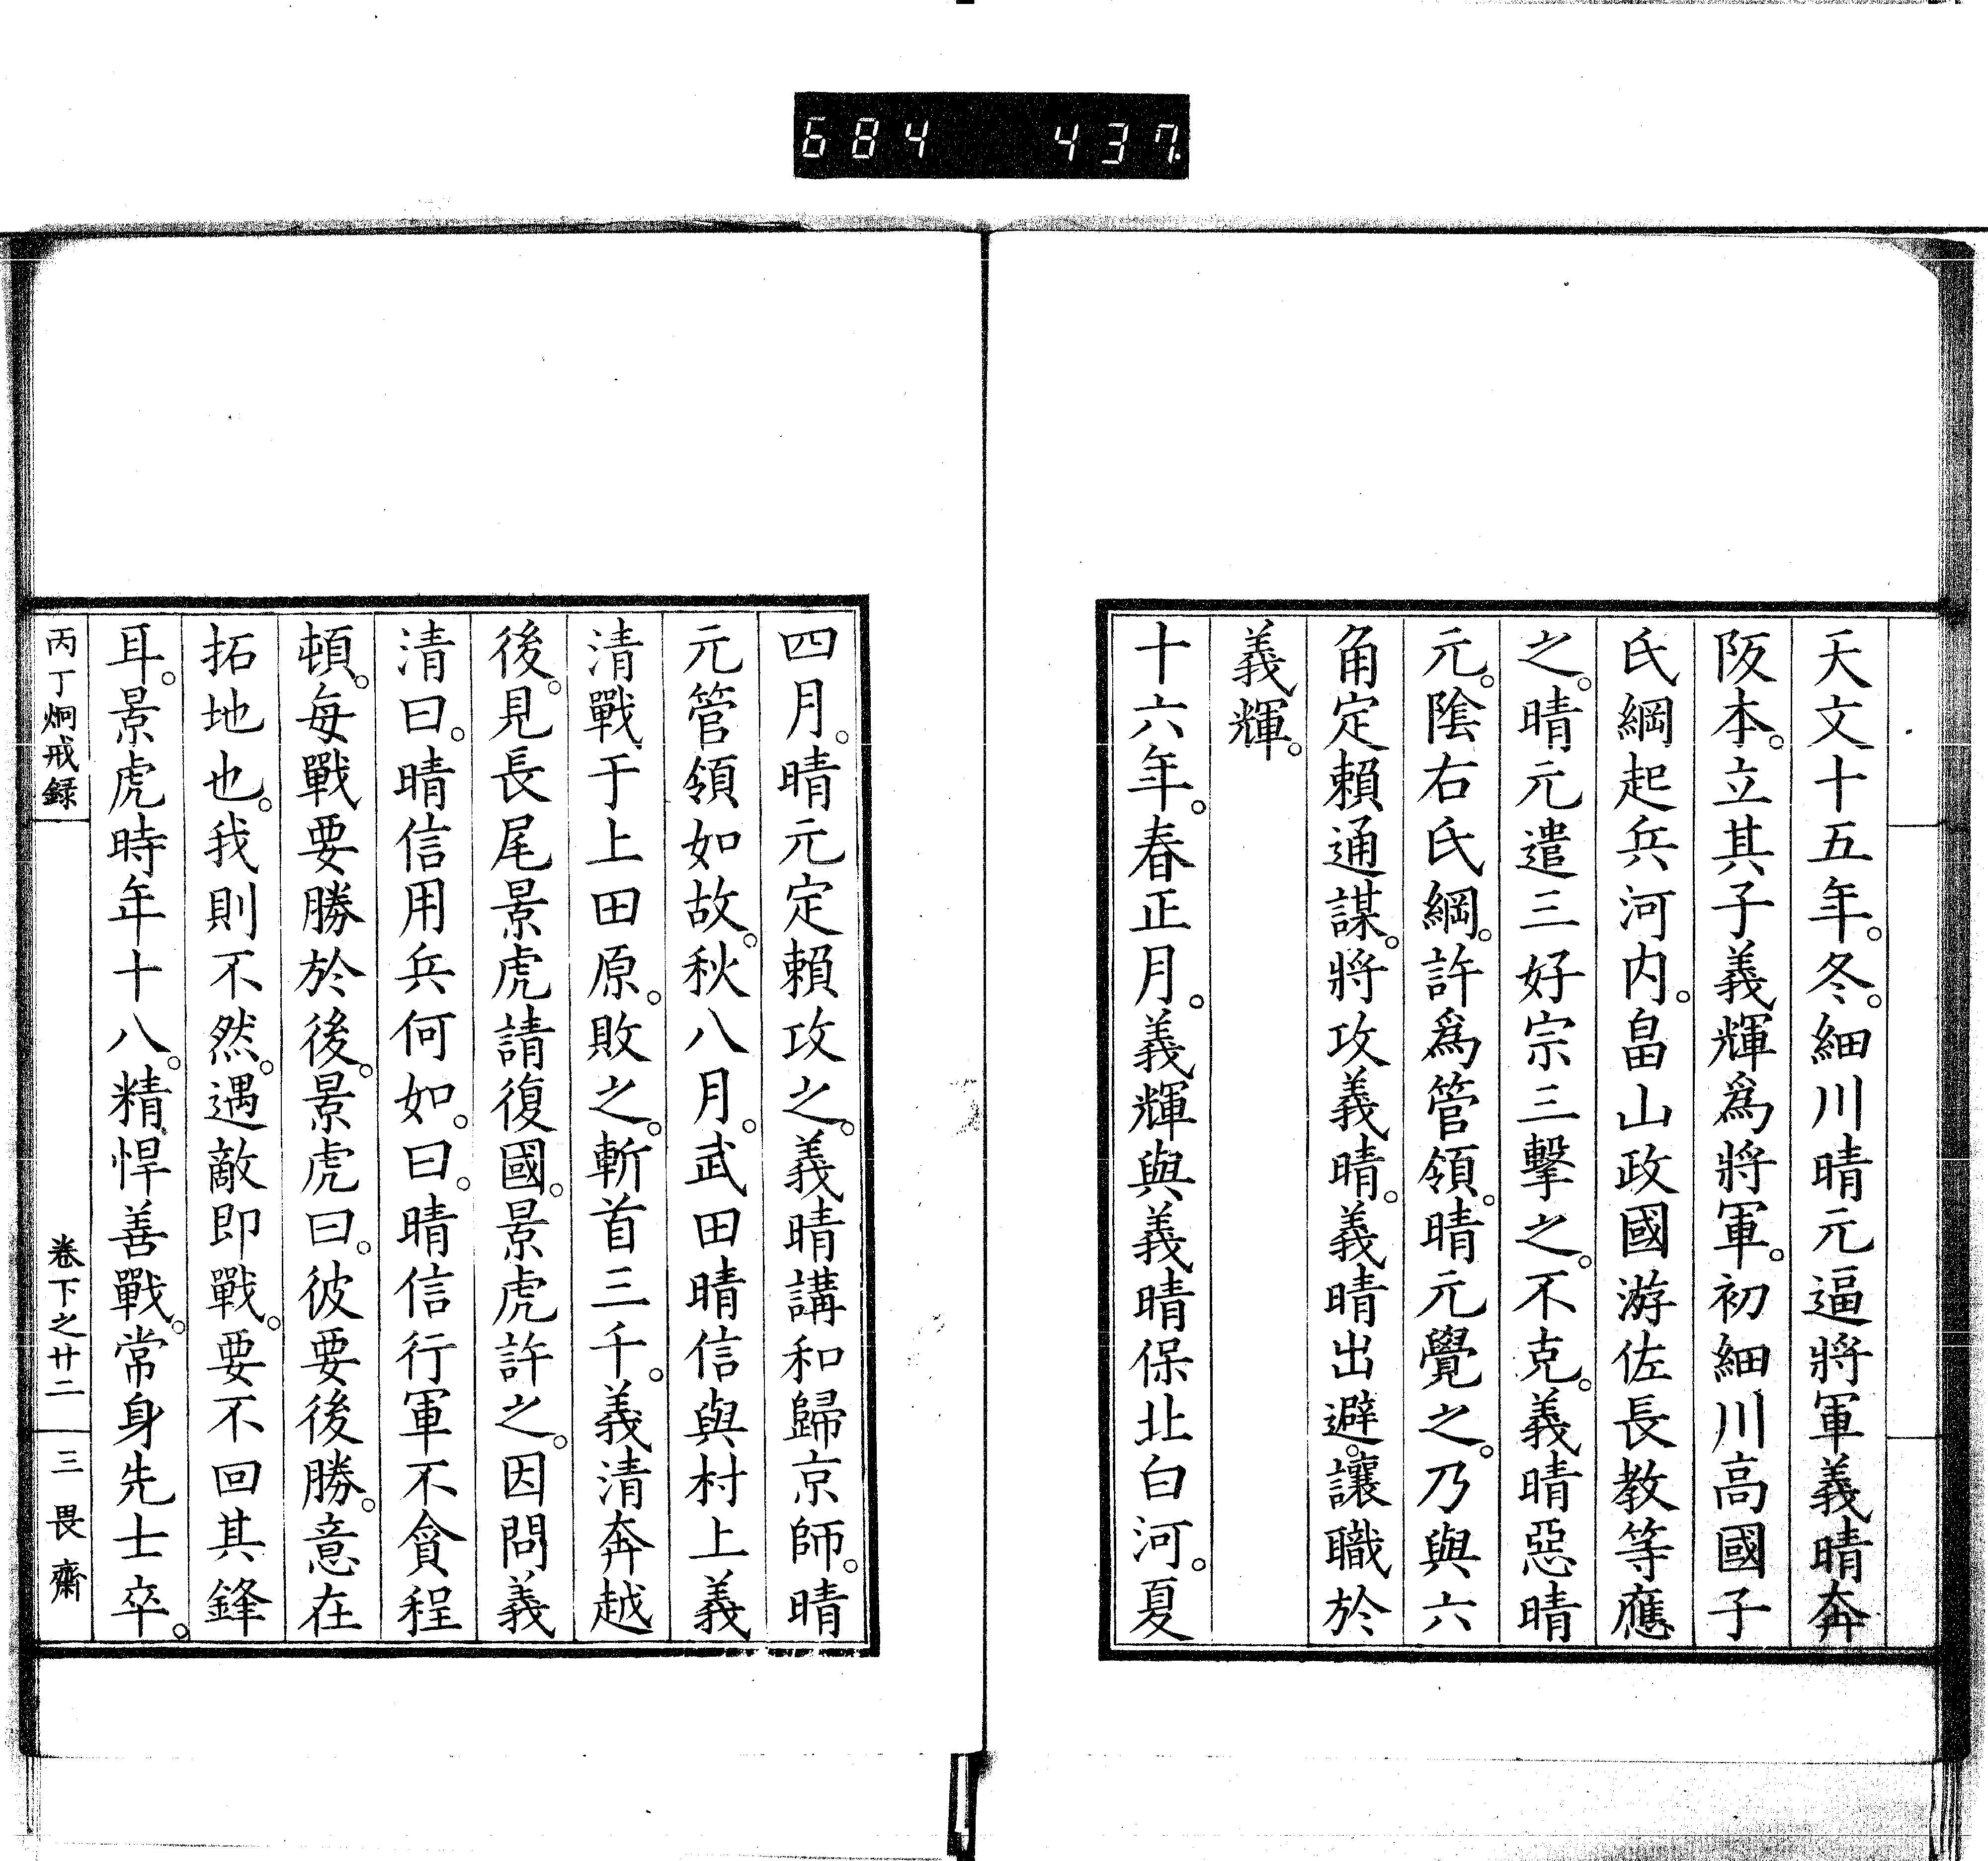 684 437
天文十五年。冬。細川晴元逼將軍義晴奔
阪本。立其子義輝爲將軍。初細川高國子
氏綱起兵河内。畠山政國游佐長教等應
之。晴元遣三好宗三擊之。不克。義晴惡晴
元。陰右氏綱。許爲管領。晴元覺之。乃與六
角定賴通謀。將攻義晴。義晴出避。讓職於
義輝。
十六年。春正月。義輝與義晴保北白河。夏
四月。晴元定賴攻之。義晴講和歸京師。晴
元管領如故。秋八月。武田晴信與村上義
清戰于上田原。敗之。斬首三千。義清奔越
後。見長尾景虎請復國。景虎許之。因問義
清曰。晴信用兵何如。曰。晴信行軍不貪程
頓。每戰要勝於後。景虎曰。彼要後勝。意在
拓地也。我則不然。遇敵即戰。要不回其鋒
耳。景虎時年十八。精悍善戰。常身先士卒。
丙丁炯戒録 卷下之廿二 三畏齋